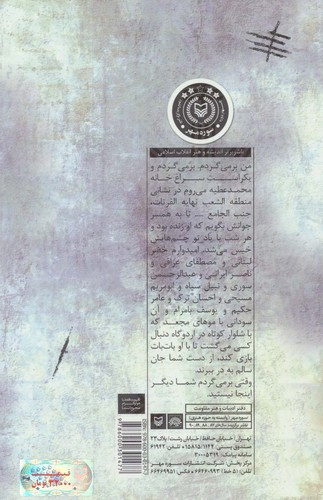 سوره مهر
ناشر برتر اندیشه و هنر انقلاب اسلامی
من برمی‌گردم. برمی‌گردم و
یکراست سراغ خانه
محمدعطیه می‌روم در نشانی
منطقه الشعب نهایه الفرنات،
جنب الجامع ... تا به همسر
جوانش بگویم که او زنده بود و
هر شب با یاد تو چشم‌هایش
خیس می‌شد. امیدوارم خضر
لبنانی و مصطفای عراقی و
ناصر ایرانی و عبدالرحمن
سوری و نبیل سیاه و ابومریم
مسیحی و احسان ترک و عامر
حکیم و یوسف بامرام و آن
سودانی با موهای مجعد که
با شلوار کوتاه در اردوگاه دنبال
کسی می‌گشت تا با او یات‌یات
بازی کند، از دست شما جان
سالم به در ببرند.
وقتی برمی‌گردم شما دیگر
اینجا نیستید.
دفتر ادبیات و هنر مقاومت
سوره مهر (وابسته به حوزه هنری)
تهران/ خیابان حافظ/ خیابان رشت/ پلاک ۲۳
صندوق پستی: ۱۱۴۴-۱۵۸۱۵ تلفن: ۶۱۹۴۲
سامانه پیامک: ۳۰۰۰۵۳۱۹
مرکز پخش: شرکت انتشارات سوره مهر
تلفن: (۵ خط) ۶۶۴۶۰۹۹۳ فکس: ۶۶۴۶۹۹۵۱